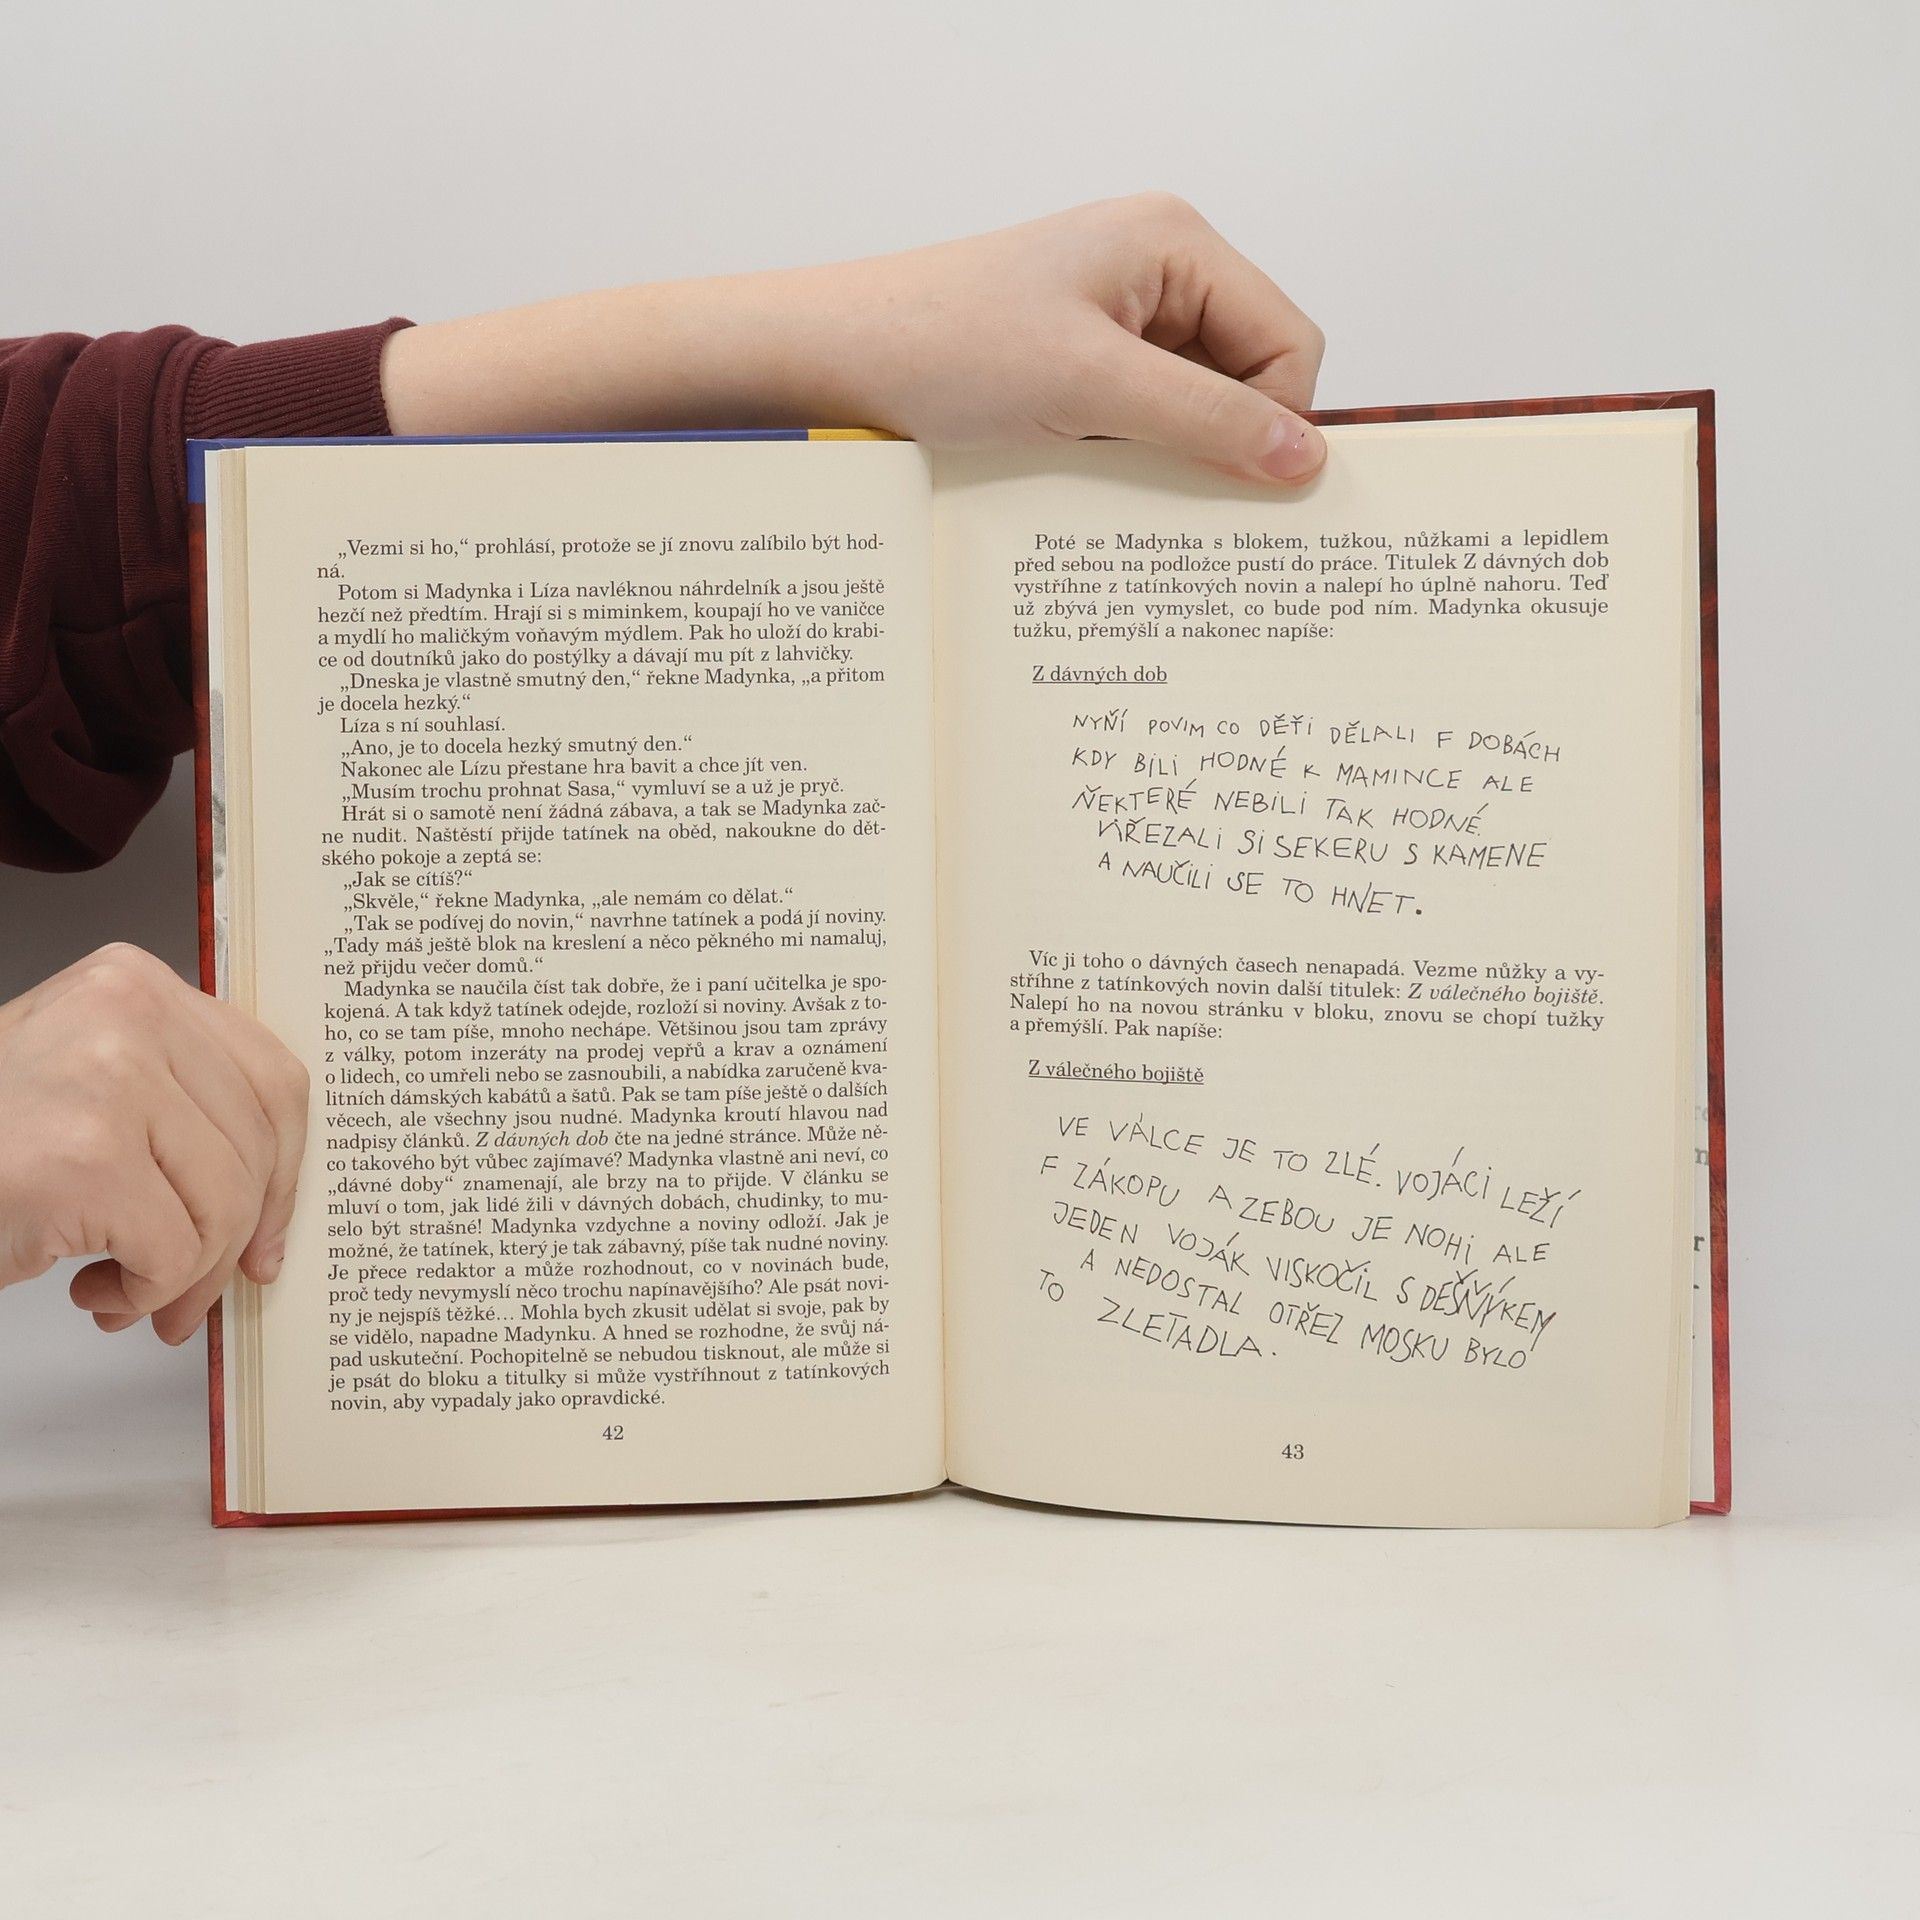 „Vezmi si ho,“ prohlásí, protože se jí znovu zalíbilo být hod-
ná.
Potom si Madynka i Líza navléknou náhrdelník a jsou ještě
hezčí než předtím. Hrají si s miminkem, koupají ho ve vaničce
a mydlí ho maličkým voňavým mýdlem. Pak ho uloží do krabi-
ce od doutníků jako do postýlky a dávají mu pít z lahvičky.
„Dneska je vlastně smutný den,“ řekne Madynka, „a přitom
je docela hezký.“
Líza s ní souhlasí.
„Ano, je to docela hezký smutný den.“
Nakonec ale Lízu přestane hra bavit a chce jít ven.
„Musím trochu prohnat Sasa,“ vymluví se a už je pryč.
Hrát si o samotě není žádná zábava, a tak se Madynka zač-
ne nudit. Naštěstí přijde tatínek na oběd, nakoukne do dět-
ského pokoje a zeptá se:
„Jak se cítíš?“
„Skvěle,“ řekne Madynka, „ale nemám co dělat.“
„Tak se podívej do novin,“ navrhne tatínek a podá jí noviny.
„Tady máš ještě blok na kreslení a něco pěkného mi namaluj,
než přijdu večer domů.“
Madynka se naučila číst tak dobře, že i paní učitelka je spo-
kojená. A tak když tatínek odejde, rozloží si noviny. Avšak z to-
ho, co se tam píše, mnoho nechápe. Většinou jsou tam zprávy
z války, potom inzeráty na prodej vepřů a krav a oznámení
o lidech, co umřeli nebo se zasnoubili, a nabídka zaručeně kva-
litních dámských kabátů a šatů. Pak se tam píše ještě o dalších
věcech, ale všechny jsou nudné. Madynka kroutí hlavou nad
nadpisy článků. Z dávných dob čte na jedné stránce. Může ně-
co takového být vůbec zajímavé? Madynka vlastně ani neví, co
„dávné doby“ znamenají, ale brzy na to přijde. V článku se
mluví o tom, jak lidé žili v dávných dobách, chudinky, to mu-
selo být strašné! Madynka vzdychne a noviny odloží. Jak je
možné, že tatínek, který je tak zábavný, píše tak nudné noviny.
Je přece redaktor a může rozhodnout, co v novinách bude,
proč tedy nevymyslí něco trochu napínavějšího? Ale psát novi-
ny je nejspíš těžké… Mohla bych zkusit udělat si svoje, pak by
se vidělo, napadne Madynku. A hned se rozhodne, že svůj ná-
pad uskuteční. Pochopitelně se nebudou tisknout, ale může si
je psát do bloku a titulky si může vystřihnout z tatínkových
novin, aby vypadaly jako opravdické.
42
Poté se Madynka s blokem, tužkou, nůžkami a lepidlem
před sebou na podložce pustí do práce. Titulek Z dávných dob
vystřihne z tatínkových novin a nalepí ho úplně nahoru. Teď
už zbývá jen vymyslet, co bude pod ním. Madynka okusuje
tužku, přemýšlí a nakonec napíše:
Z dávných dob
NYŇÍ POVIM CO DĚŤI DĚLALI F DOBÁCH
KDY BILI HODNÉ K MAMINCE ALE
ŇEKTERÉ NEBILI TAK HODNÉ
VIŘEZALI SI SEKERU S KAMENE
A NAUČILI SE TO HNET.
Víc ji toho o dávných časech nenapadá. Vezme nůžky a vy-
stříhne z tatínkových novin další titulek: Z válečného bojiště.
Nalepí ho na novou stránku v bloku, znovu se chopí tužky
a přemýšlí. Pak napíše:
Z válečného bojiště
VE VÁLCE JE TO ZLÉ. VOJÁCI LEŽÍ
F ZÁKOPU A ZEBOU JE NOHI ALE
JEDEN VOJÁK VISKOČIL S DEŠŇÝKEM
A NEDOSTAL OTŘEZ MOSKU BYLO
TO ZLETADLA.
43